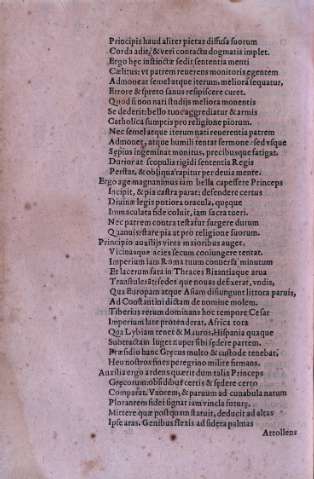 Principis haud aliter pietas diffusa suorum
Corda adit, & veri contacta dogmatis implet.
Ergo hęc instincta sedit sententia menti
Cælitus: vt patrem reuerens monitoris egentem
Admoneat semel atque iterum, meliora sequatur,
Errore & spreto sanus resipiscere curet.
Quod si non nati studijs meliora monentis
Se dederit: bello tuto aggrediatur & armis
Catholica sumptis pro religione piorum.
Nec semel atque iterum nati reuerentia patrem
Admonet, atque humili tentat sermone: sed vsque
Sępius ingeminat monitus, precibusque fatigat.
Durior at scopulis rigidi sententia Regis
Perstat, & obliqua rapitur per deuia mente.
Ergo age magnanimus iam bella capessere Princeps
Incipit, & pia castra parat: defendere certus
Diuinæ legis potiora oracula, quęque
Immaculata fide coluit, iam sacra tueri.
Nec patrem contra testatur surgere durum
Quamuis stare pia at pro religione suorum.
Principio auxilijs vires maioribus auget.
Vicinasque acies secum coniungere tentat.
Imperium iam Roma tuum conuersa minutum
Et lacerum fata in Thraces Bizantiaque arua
Transtulerãt: sedes que nouas defixerat, vndis,
Qua Europam atque Asiam disiungunt littora paruis,
Ad Constantini dictam de nomine molem.
Tiberius rerum dominans hoc tempore Cæsar
Imperium late protenderat. Africa tota
Qua Lybiam tenet & Mauros, Hispania quaque
Subtractam luget nuper sibi sędere partem.
Præsidio hanc Gręcus multo & custode tenebat,
Heu nostros fines peregrino milite firmans.
Auxilia ergo ardens quęrit dum talia Princeps
Gręcorum: obsidibus certis & sędere certo
Comparat. Vxorem, & paruum ad cunabula natum
Plorantem fidei signat iam vincla futurę.
Mittere quæ postquam statuit, deducit ad altas
Ipse aras. Genibus flexis ad sidera palmas
Attollens